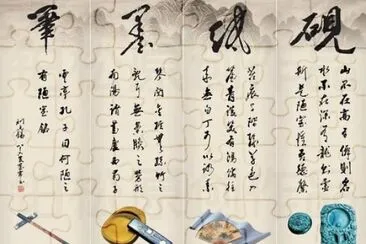 硯
山不在高有仙則名
水不在深有龍則靈
斯是陋室惟吾德馨
紙
苔痕上階綠草色入
簾青談笑有鴻儒往
來無白丁可以調素
墨
琴閱金經無絲竹之
亂耳無案牘之勞形
南陽諸葛廬西蜀子
筆
雲亭孔子曰何陋之
有陋室銘